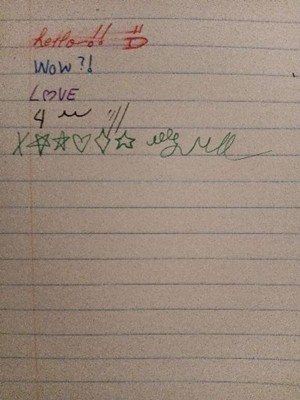 hello!!
WOW?!
LOVE
4